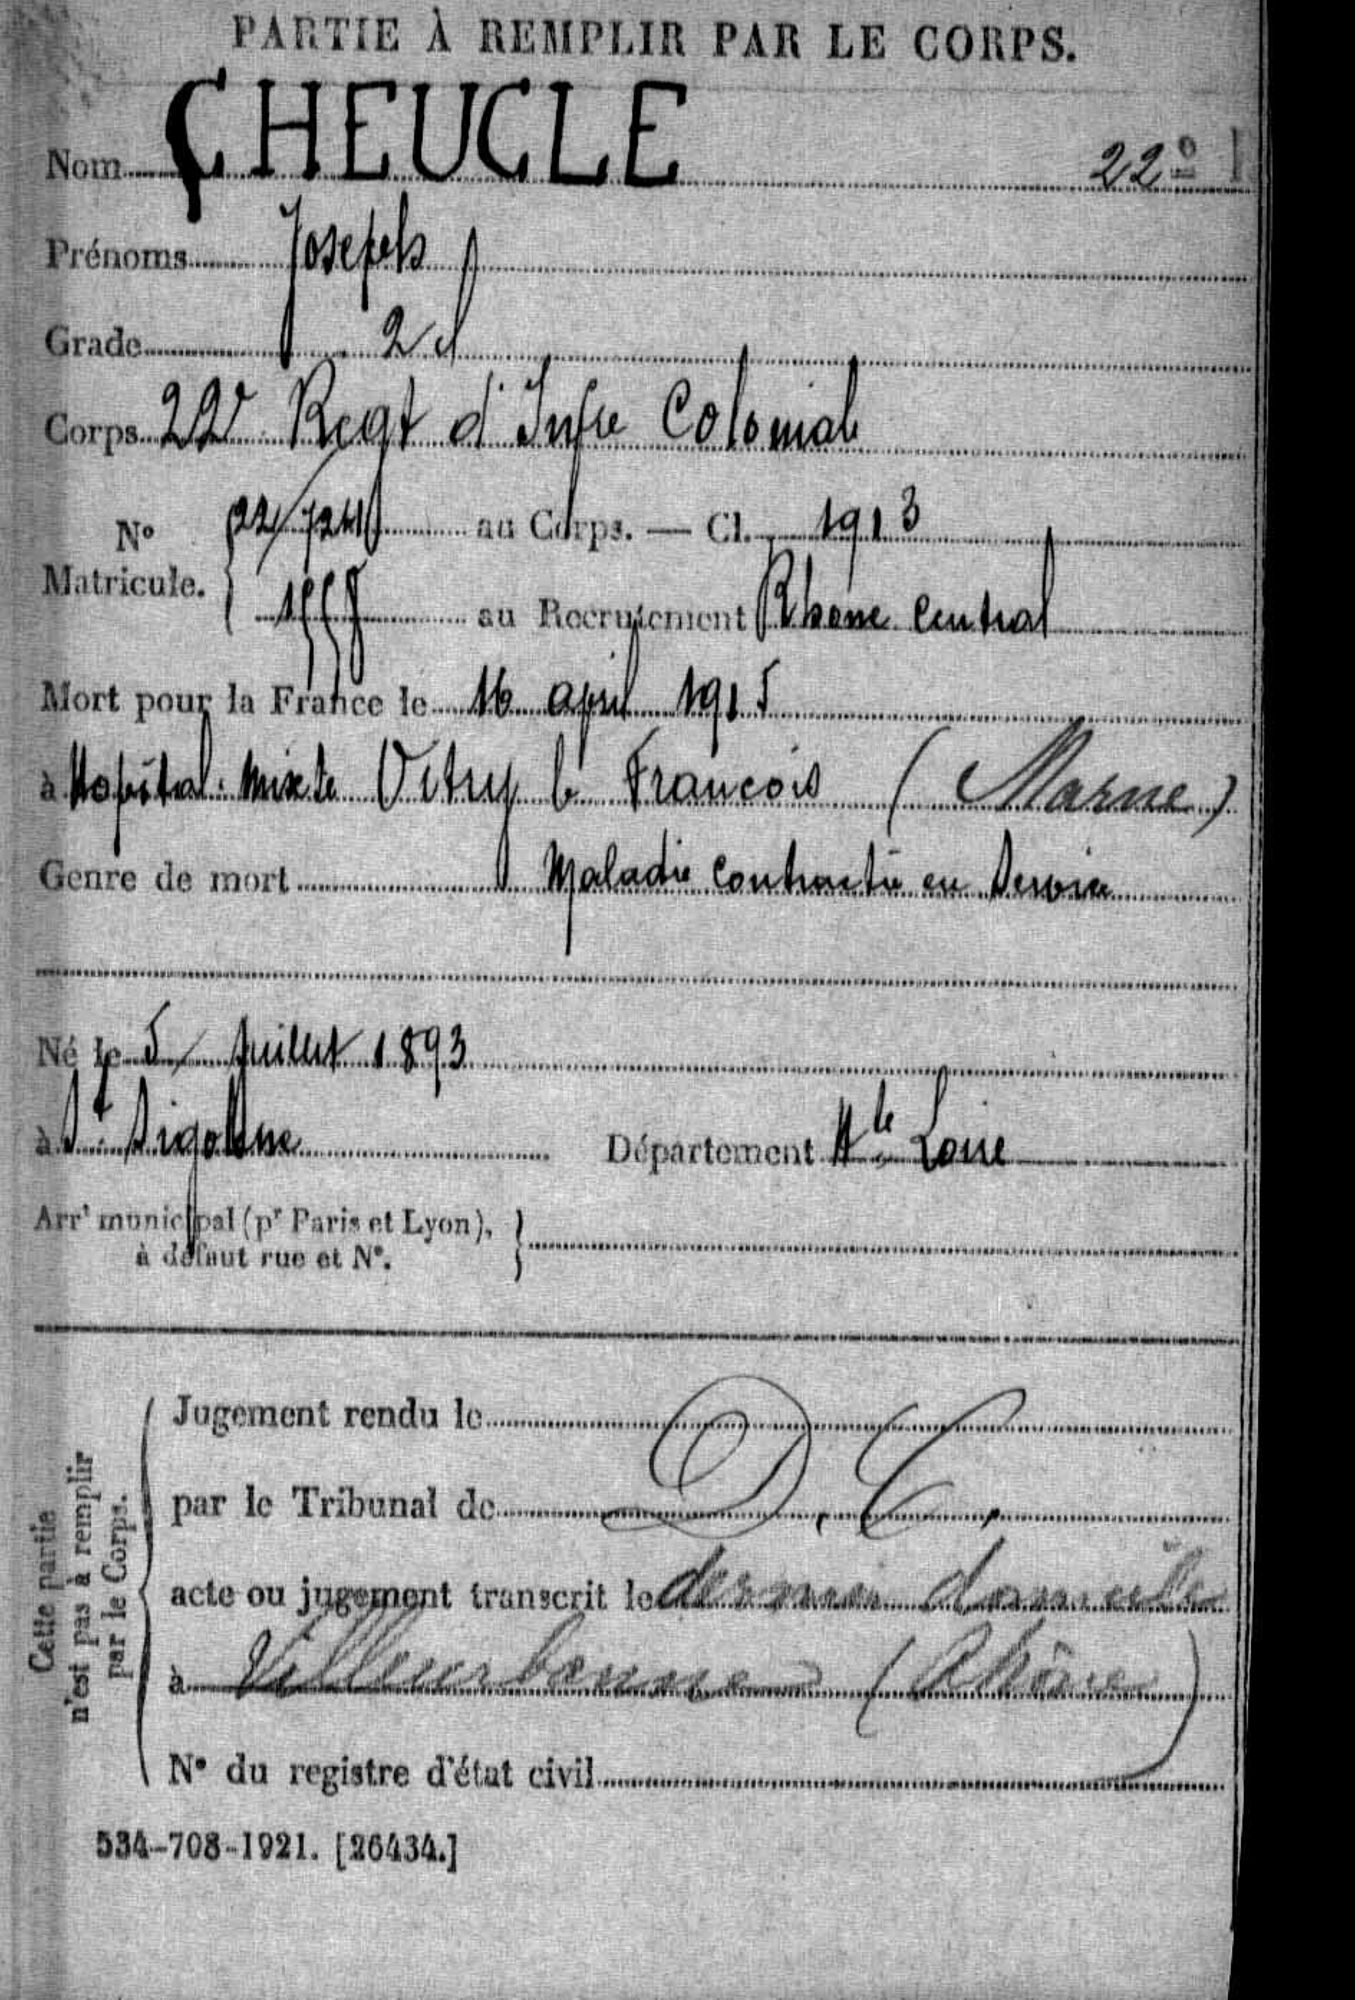 PARTIE À REMPLIR PAR LE CORPS.
Nom CHEUCLE 22e
Prénoms Joseph
Grade 2 cl
Corps 22e Regt d'Infie Coloniale
No Matricule. { 22/7241 au Corps. — Cl. 1913
1558 au Recrutement Rhone Central
Mort pour la France le 16 april 1915
à Hopital mixte Vitry le Francois (Marne)
Genre de mort Maladie contractée en Service
Né le 5 Juillet 1893
à St. Sigolène Département Hte Loire
Arrt municipal (pr Paris et Lyon), }
à défaut rue et No.
Cette partie
n'est pas à remplir
par le Corps.
Jugement rendu le
par le Tribunal de D. C.
acte ou jugement transcrit le dernier domicile
à Villeurbanne (Rhône)
No du registre d'état civil
534-708-1921. [26434.]